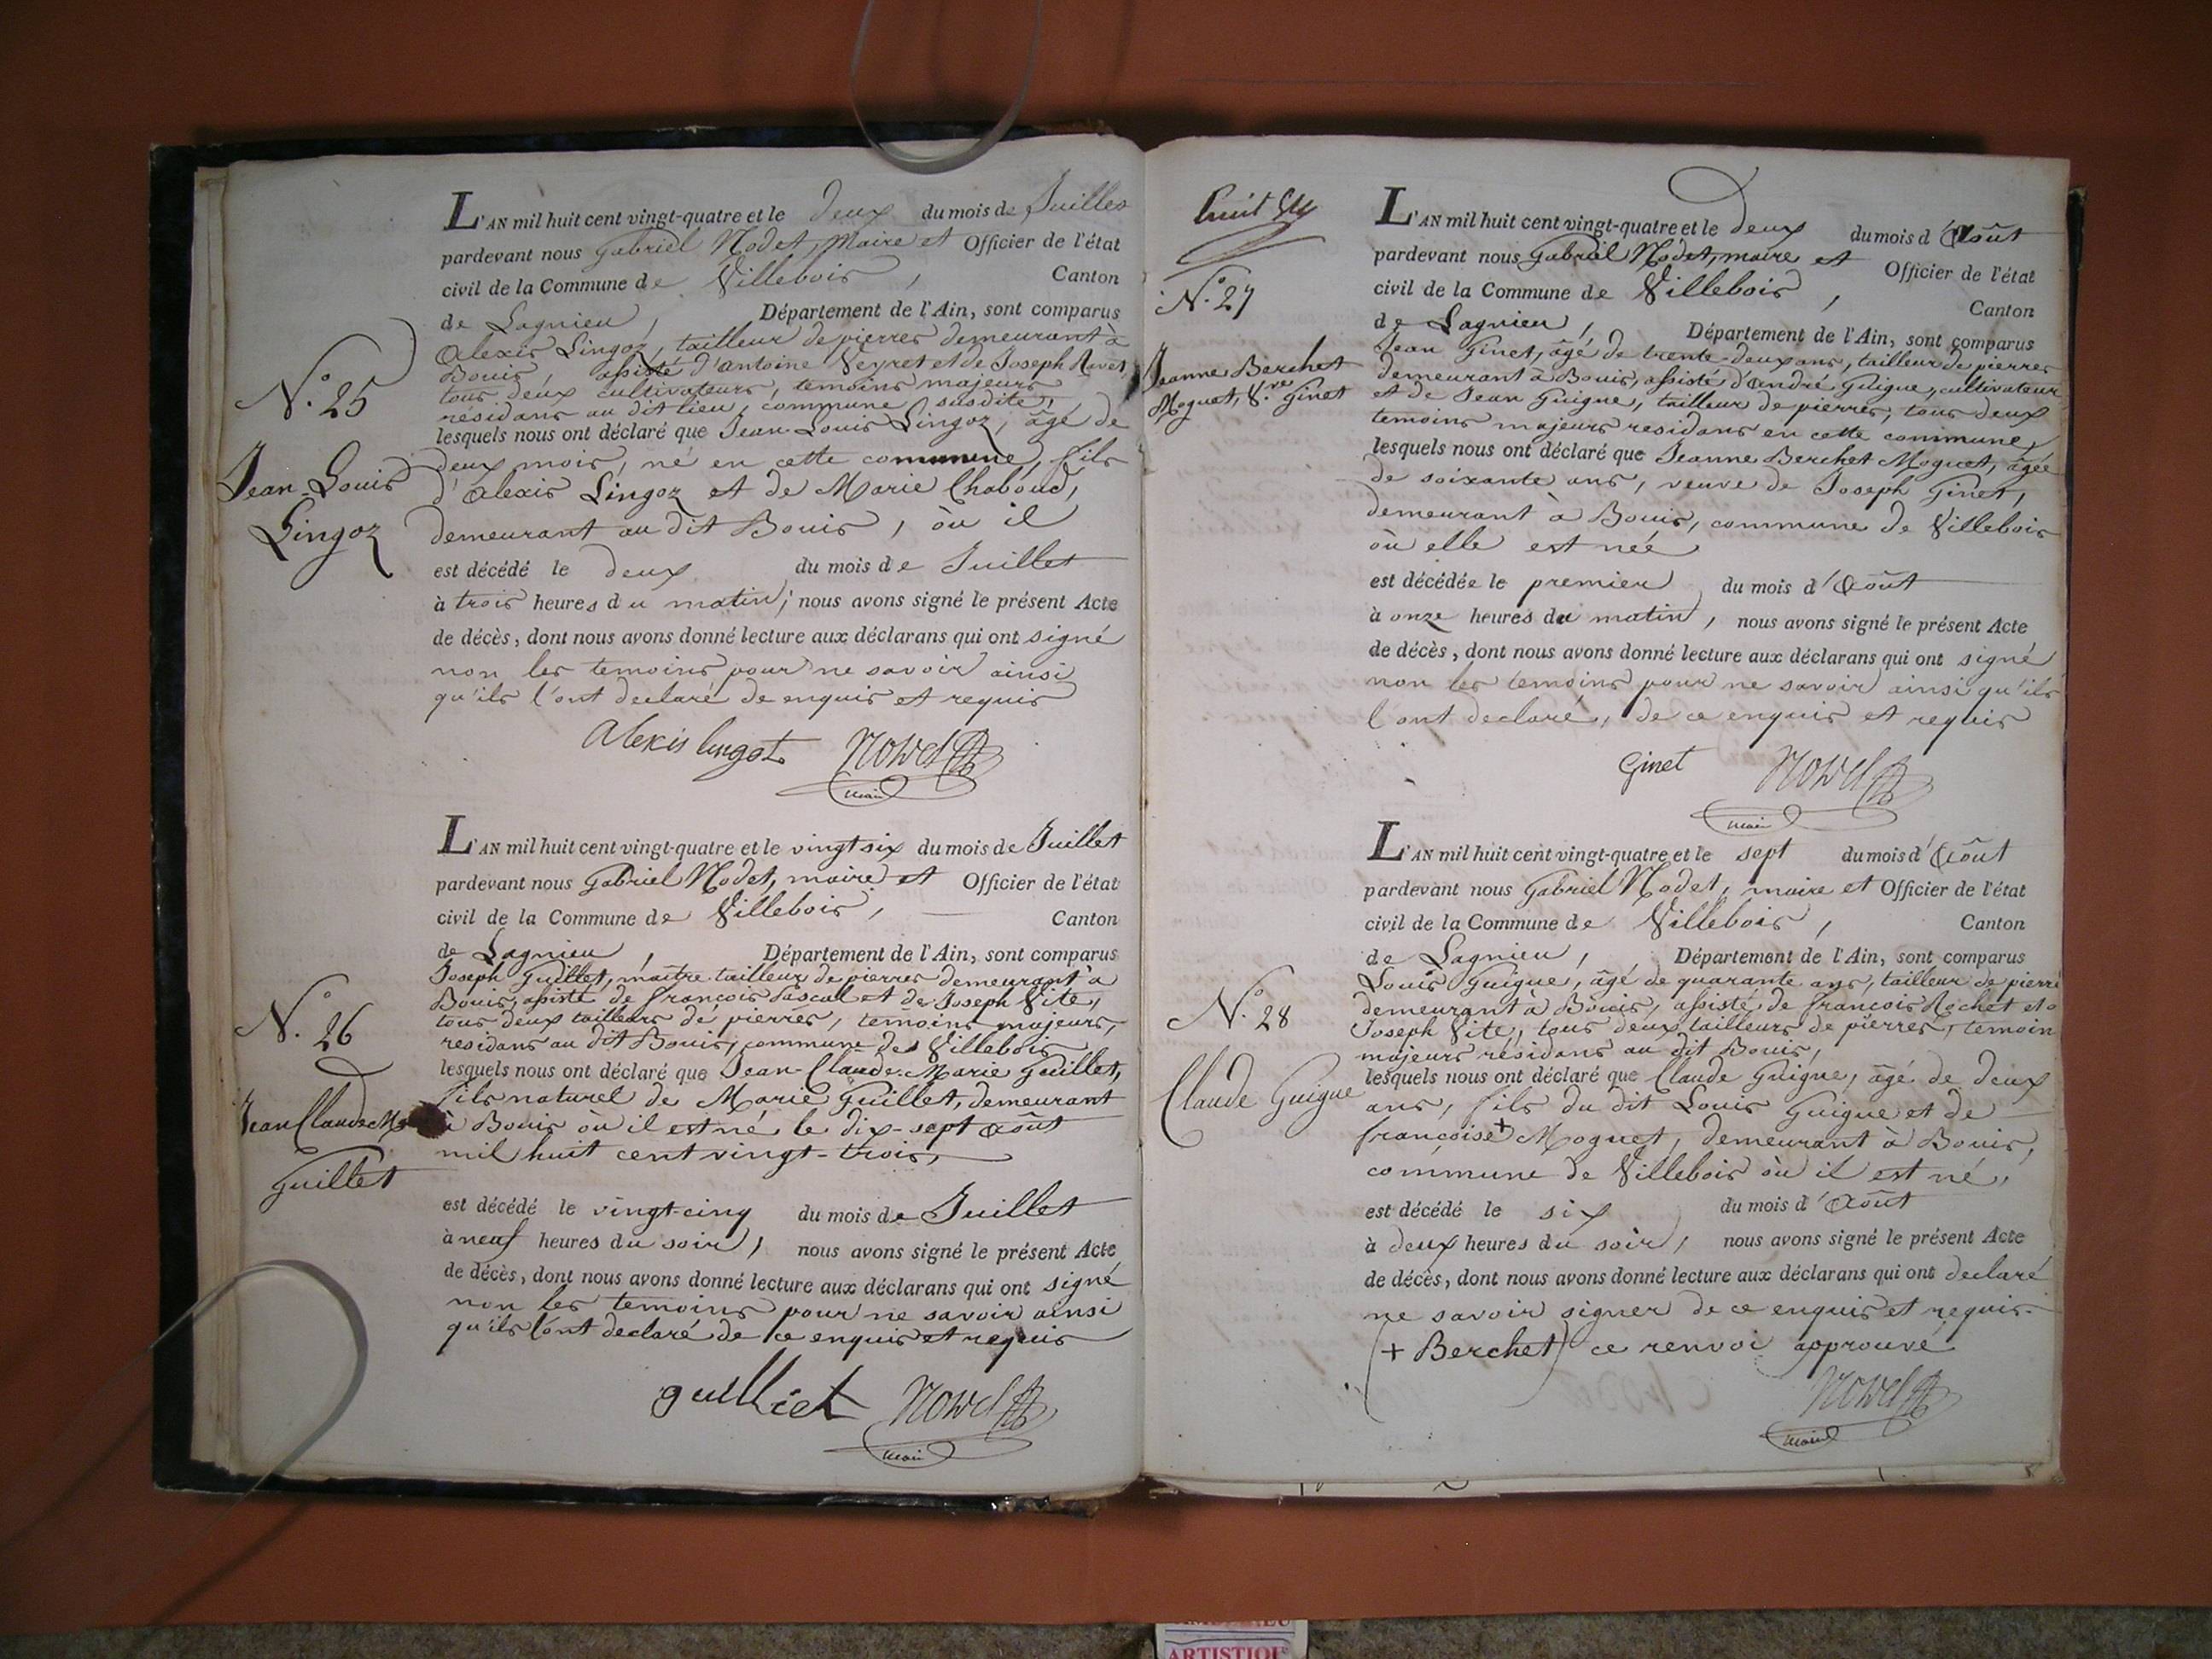 L'AN mil huit cent vingt-quatre et le deux du mois de Juillet
pardevant nous Gabriel Nodet, Maire et Officier de l'état
civil de la Commune de Villebois, Canton
de Lagnieu, Département de l'Ain, sont comparus
Alexis Lingoz, tailleur de pierres demeurant à
Bouis, assisté d'antoine Veyret et de Joseph Ravet,
tous deux cultivateurs, temoins majeurs
résidans au dit lieu, commune susdite,
lesquels nous ont déclaré que Jean-Louis Lingoz, âgé de
deux mois, né en cette commune, fils
d'Alexis Lingoz et de Marie Chaboud,
demeurant au dit Bouis, où il
est décédé le deux du mois de Juillet
à trois heures du matin; nous avons signé le présent Acte
de décès, dont nous avons donné lecture aux déclarans qui ont signé
non les temoins pour ne savoir ainsi
qu'ils l'ont declaré de enquis et requis
Alexis lingot Nodet
Maire
N.° 25
Jean-Louis
Lingoz
L'AN mil huit cent vingt-quatre et le vingt six du mois de Juillet
pardevant nous Gabriel Nodet, maire et Officier de l'état
civil de la Commune de Villebois, Canton
de Lagnieu, Département de l'Ain, sont comparus
Joseph Guillet, maître tailleur de pierres demeurant à
Bouis, assisté de françois Pascal et de Joseph Vite,
tous deux tailleurs de pierres, temoins majeurs,
residans au dit Bouis, commune de Villebois
lesquels nous ont déclaré que Jean-Claude-Marie Guillet,
fils naturel de Marie Guillet, demeurant
à Bouis où il est né le dix-sept Août
mil huit cent vingt-trois,
est décédé le vingt-cinq du mois de Juillet
à neuf heures du soir, nous avons signé le présent Acte
de décès, dont nous avons donné lecture aux déclarans qui ont signé
non les temoins pour ne savoir ainsi
qu'ils l'ont declaré de ce enquis et requis
guilliet Nodet
Maire
N.° 26
Jean Claude
Guillet
huit
L'AN mil huit cent vingt-quatre et le Deux du mois d'Août
pardevant nous Gabriel Nodet, maire et Officier de l'état
civil de la Commune de Villebois, Canton
de Lagnieu, Département de l'Ain, sont comparus
Jean Ginet, âgé de trente-deux ans, tailleur de pierres
demeurant à Bouis, assisté d'André Guigue, cultivateur
et de Jean Guigue, tailleur de pierres, tous deux
temoins majeurs residans en cette commune,
lesquels nous ont déclaré que Jeanne Berchet Moguet, âgée
de soixante ans, veuve de Joseph Ginet,
demeurant à Bouis, commune de Villebois
où elle est née
est décédée le premier du mois d'Août
à onze heures du matin, nous avons signé le présent Acte
de décès, dont nous avons donné lecture aux déclarans qui ont signé
non les temoins pour ne savoir ainsi qu'ils
l'ont declaré, de ce enquis et requis
Ginet Nodet
Maire
N.° 27
Jeanne Berchet
Moguet, V.ve Ginet
L'AN mil huit cent vingt-quatre et le sept du mois d'Août
pardevant nous Gabriel Nodet, maire et Officier de l'état
civil de la Commune de Villebois, Canton
de Lagnieu, Département de l'Ain, sont comparus
Louis Guigue, âgé de quarante ans, tailleur de pierre
demeurant à Bouis, assisté de françois Rochet et
Joseph Vite, tous deux tailleurs de pierres, temoin
majeurs résidans au dit Bouis,
lesquels nous ont déclaré que Claude Guigue, âgé de deux
ans, fils du dit Louis Guigue et de
françoise + Moguet, demeurant à Bouis,
commune de Villebois où il est né,
est décédé le six du mois d'Août
à deux heures du soir, nous avons signé le présent Acte
de décès, dont nous avons donné lecture aux déclarans qui ont declaré
ne savoir signer de ce enquis et requis.
(+ Berchet) ce renvoi approuvé
Nodet
Maire
N.° 28
Claude Guigue